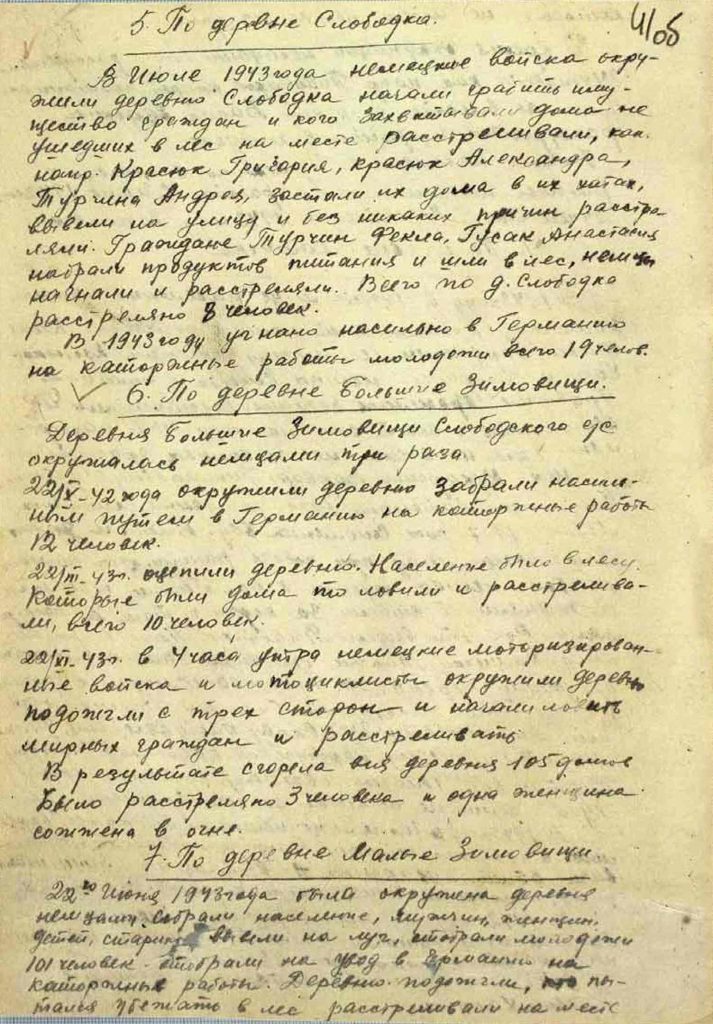 5. По деревне Слободка.
4/об
В Июле 1943 года немецкие войска окру-
жили деревню Слободка начали грабить иму-
щество граждан и кого захватывали дома не
ушедших в лес на месте расстреливали, как
напр. Красюк Григария, Красюк Александра,
Турчина Андрея, застали их дома в их хатах,
вывели на улицу и без никаких причин расстре-
ляли. Граждане Турчин Фекла, Гусак Анастасия
набрали продуктов питания и шли в лес, немцы
нагнали и расстреляли. Всего по д. Слободка
расстреляно 8 человек.
В 1943 году угнано насильно в Германию
на каторжные работы молодежи всего 19 челов.
6. По деревне Большие Зимовищи.
Деревня Большие Зимовищи Слободского с/с
окружалась немцами три раза
22/X-42 года окружили деревню забрали насиль-
ным путем в Германию на каторжные работы
12 человек.
22/III-43г. оцепили деревню. Население было в лесу.
Которые были дома то ловили и расстрелива-
ли, всего 10 человек.
22/VI-43г. в 4 часа утра немецкие моторизирован-
ные войска и мотоциклисты окружили деревню
подожгли с трех сторон и начали ловить
мирных граждан и расстреливать
В результате сгорела вся деревня 105 домов
Было расстреляно 3 человека и одна женщина
сожжена в огне.
7. По деревне Малые Зимовищи
22го Июня 1943 года была окружена деревня
немцами, собрали население, мужчин, женщин,
детей, стариков вывели на луг, отобрали молодежи
101 человек отобрали на увод в Германию на
каторжные работы. Деревню подожгли, кто пы-
тался убежать в лес расстреливали на месте